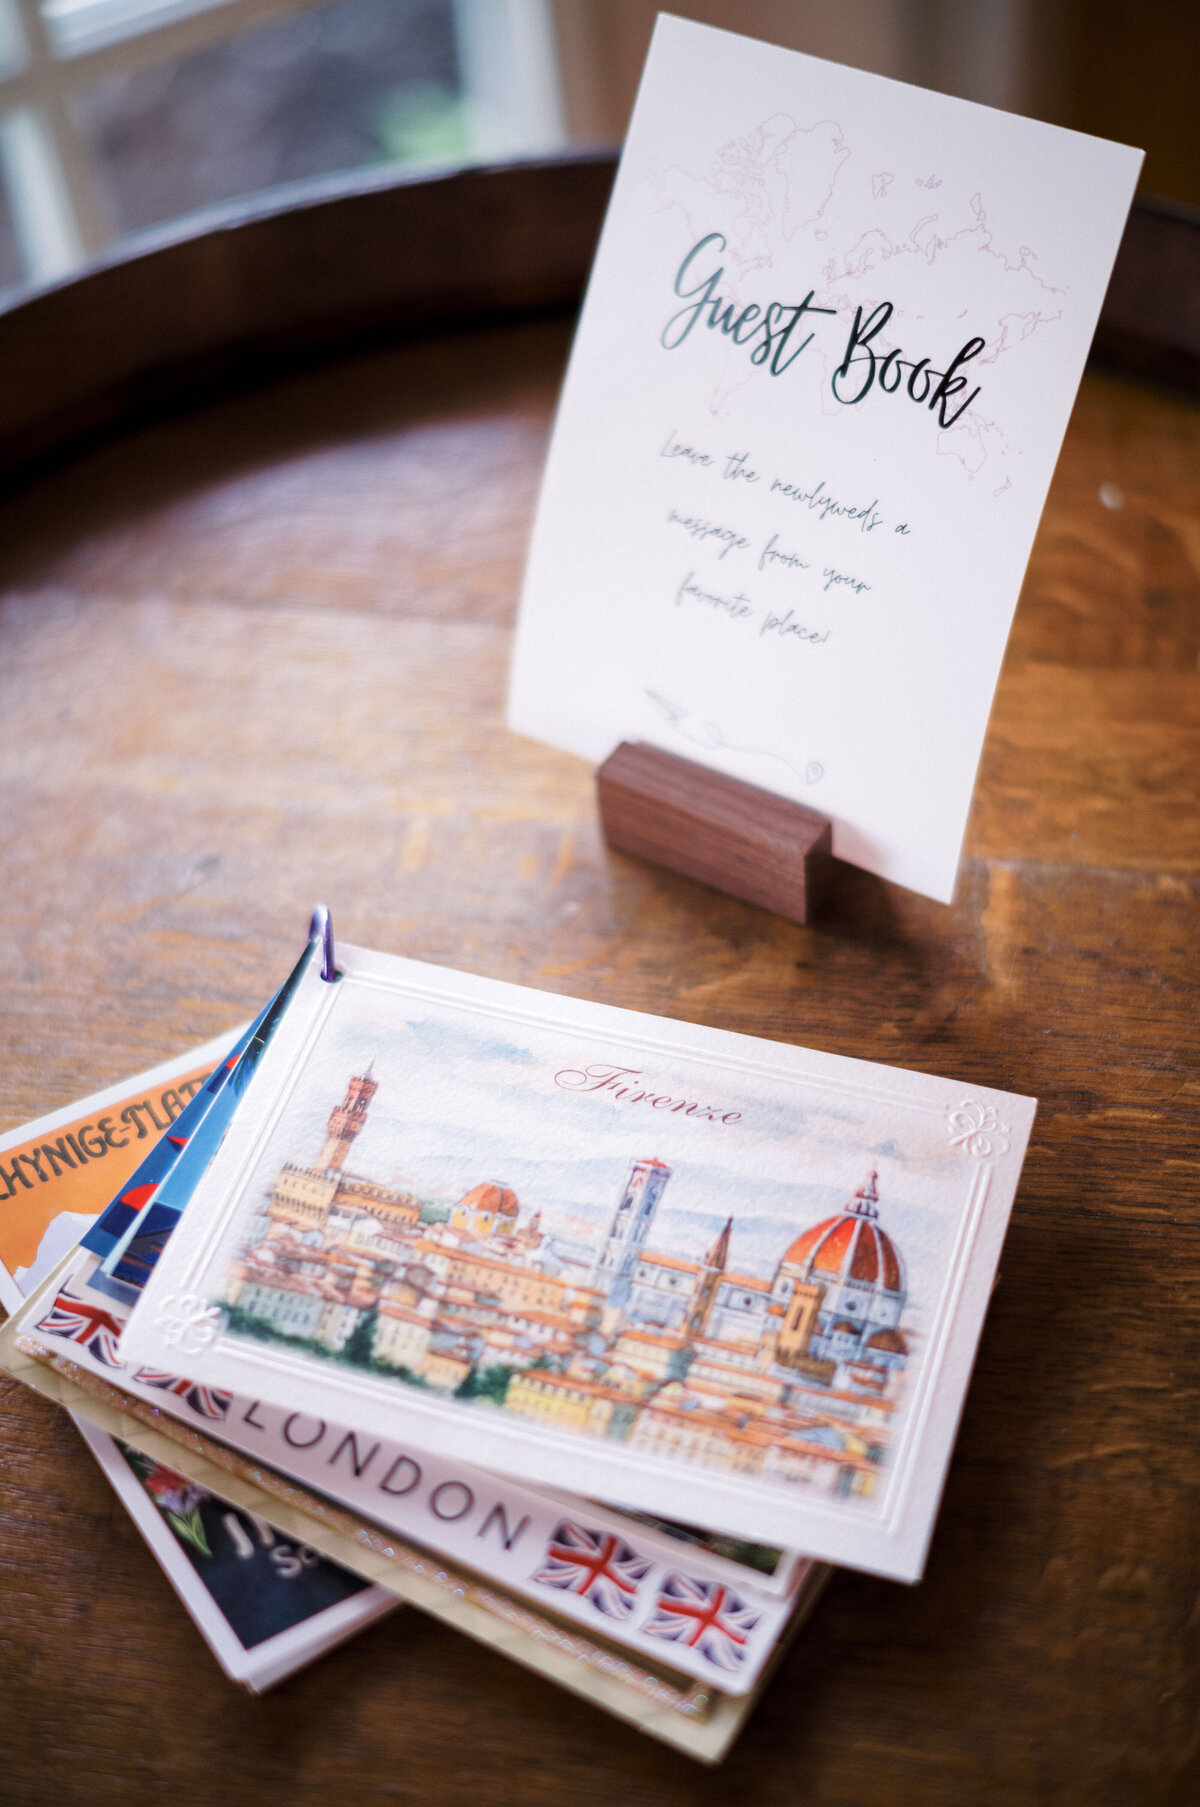 Guest Book
Leave the newlyweds a
message from your
favorite place!
Firenze
LONDON